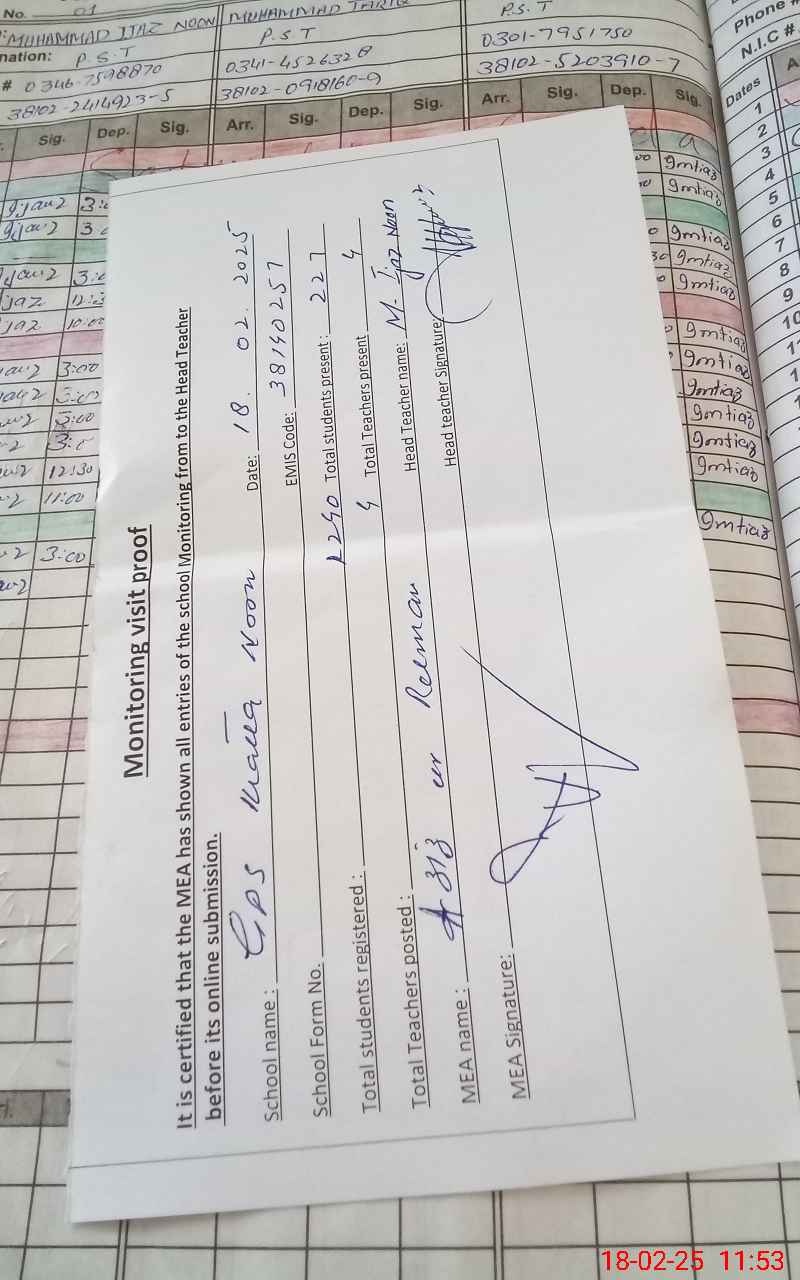 No. 01
MUHAMMAD IJAZ NOON
MUHAMMAD TARIQ
nation: P.S.T
P.S.T
P.S.T
# 0346-7598870
0341-4526328
0301-7951750
38102-2414923-5
38102-0918160-9
38102-5203910-7
Phone #
N.I.C #
Sig. Dep. Sig. Arr. Sig. Dep. Sig. Arr. Sig. Dep. Sig.
Dates
1
2
3
4
5
6
7
8
9
10
Monitoring visit proof
It is certified that the MEA has shown all entries of the school Monitoring from to the Head Teacher
before its online submission.
School name : GPS Noon Date: 18. 02. 2025
School Form No. EMIS Code: 38140257
Total students registered : 240 Total students present : 227
Total Teachers posted : 4 Total Teachers present 4
MEA name : Aziz ur Rehman Head Teacher name: M. Ijaz Noon
MEA Signature: Head teacher Signature:
3:00
3:00
12:30
11:00
3:00
Imtiaz
Imtiaz
Imtiaz
Imtiaz
Imtiaz
Imtiaz
Imtiaz
Imtiaz
Imtiaz
Imtiaz
Imtiaz
Imtiaz
18-02-25 11:53